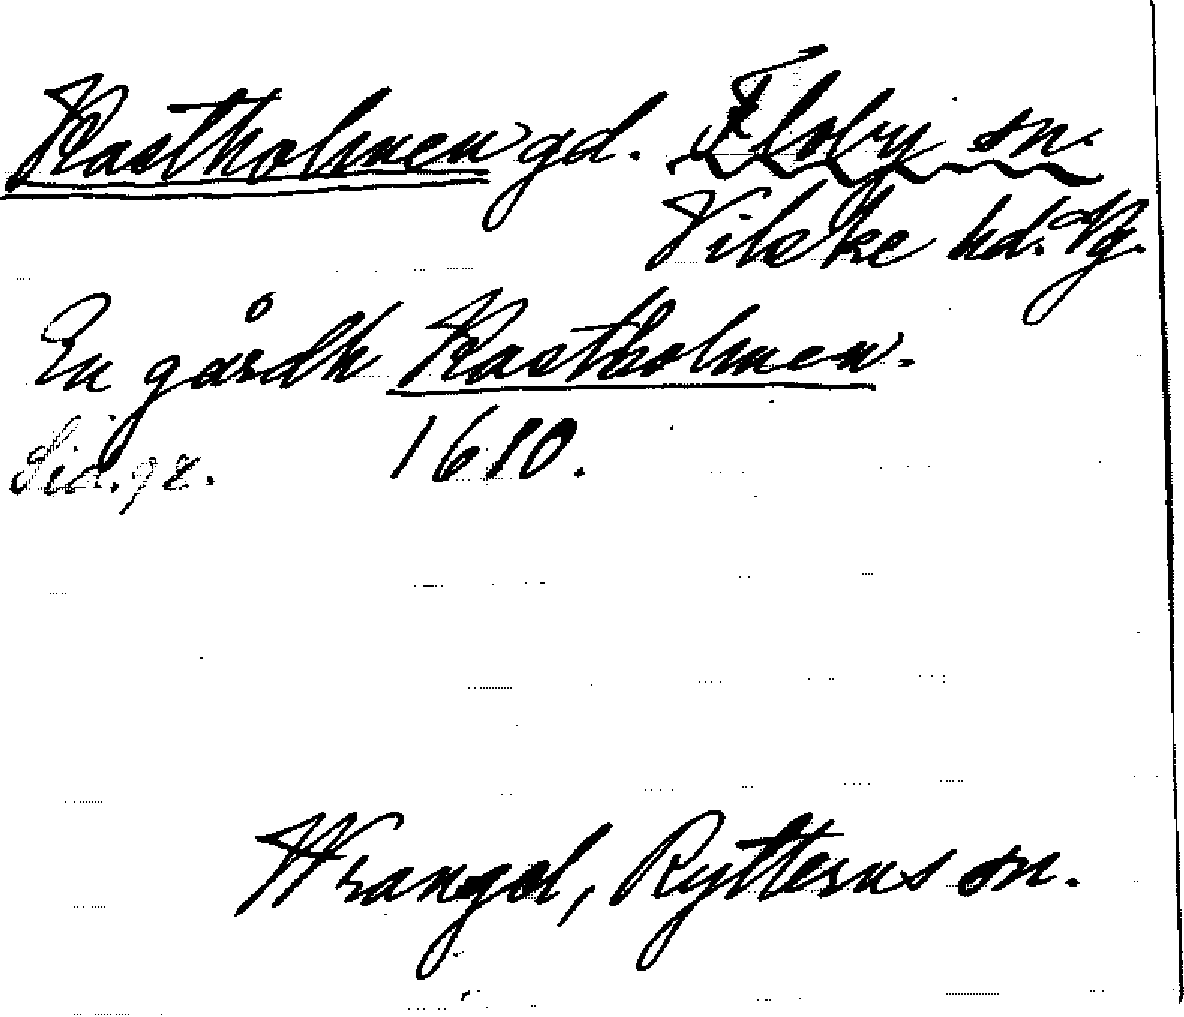 Rastholmen gd. Floby sn.
Vilske hd. Vg.
En gårdh Rastholmen.
Sid. 92. 1610.
Wrangel, Rytterns sn.